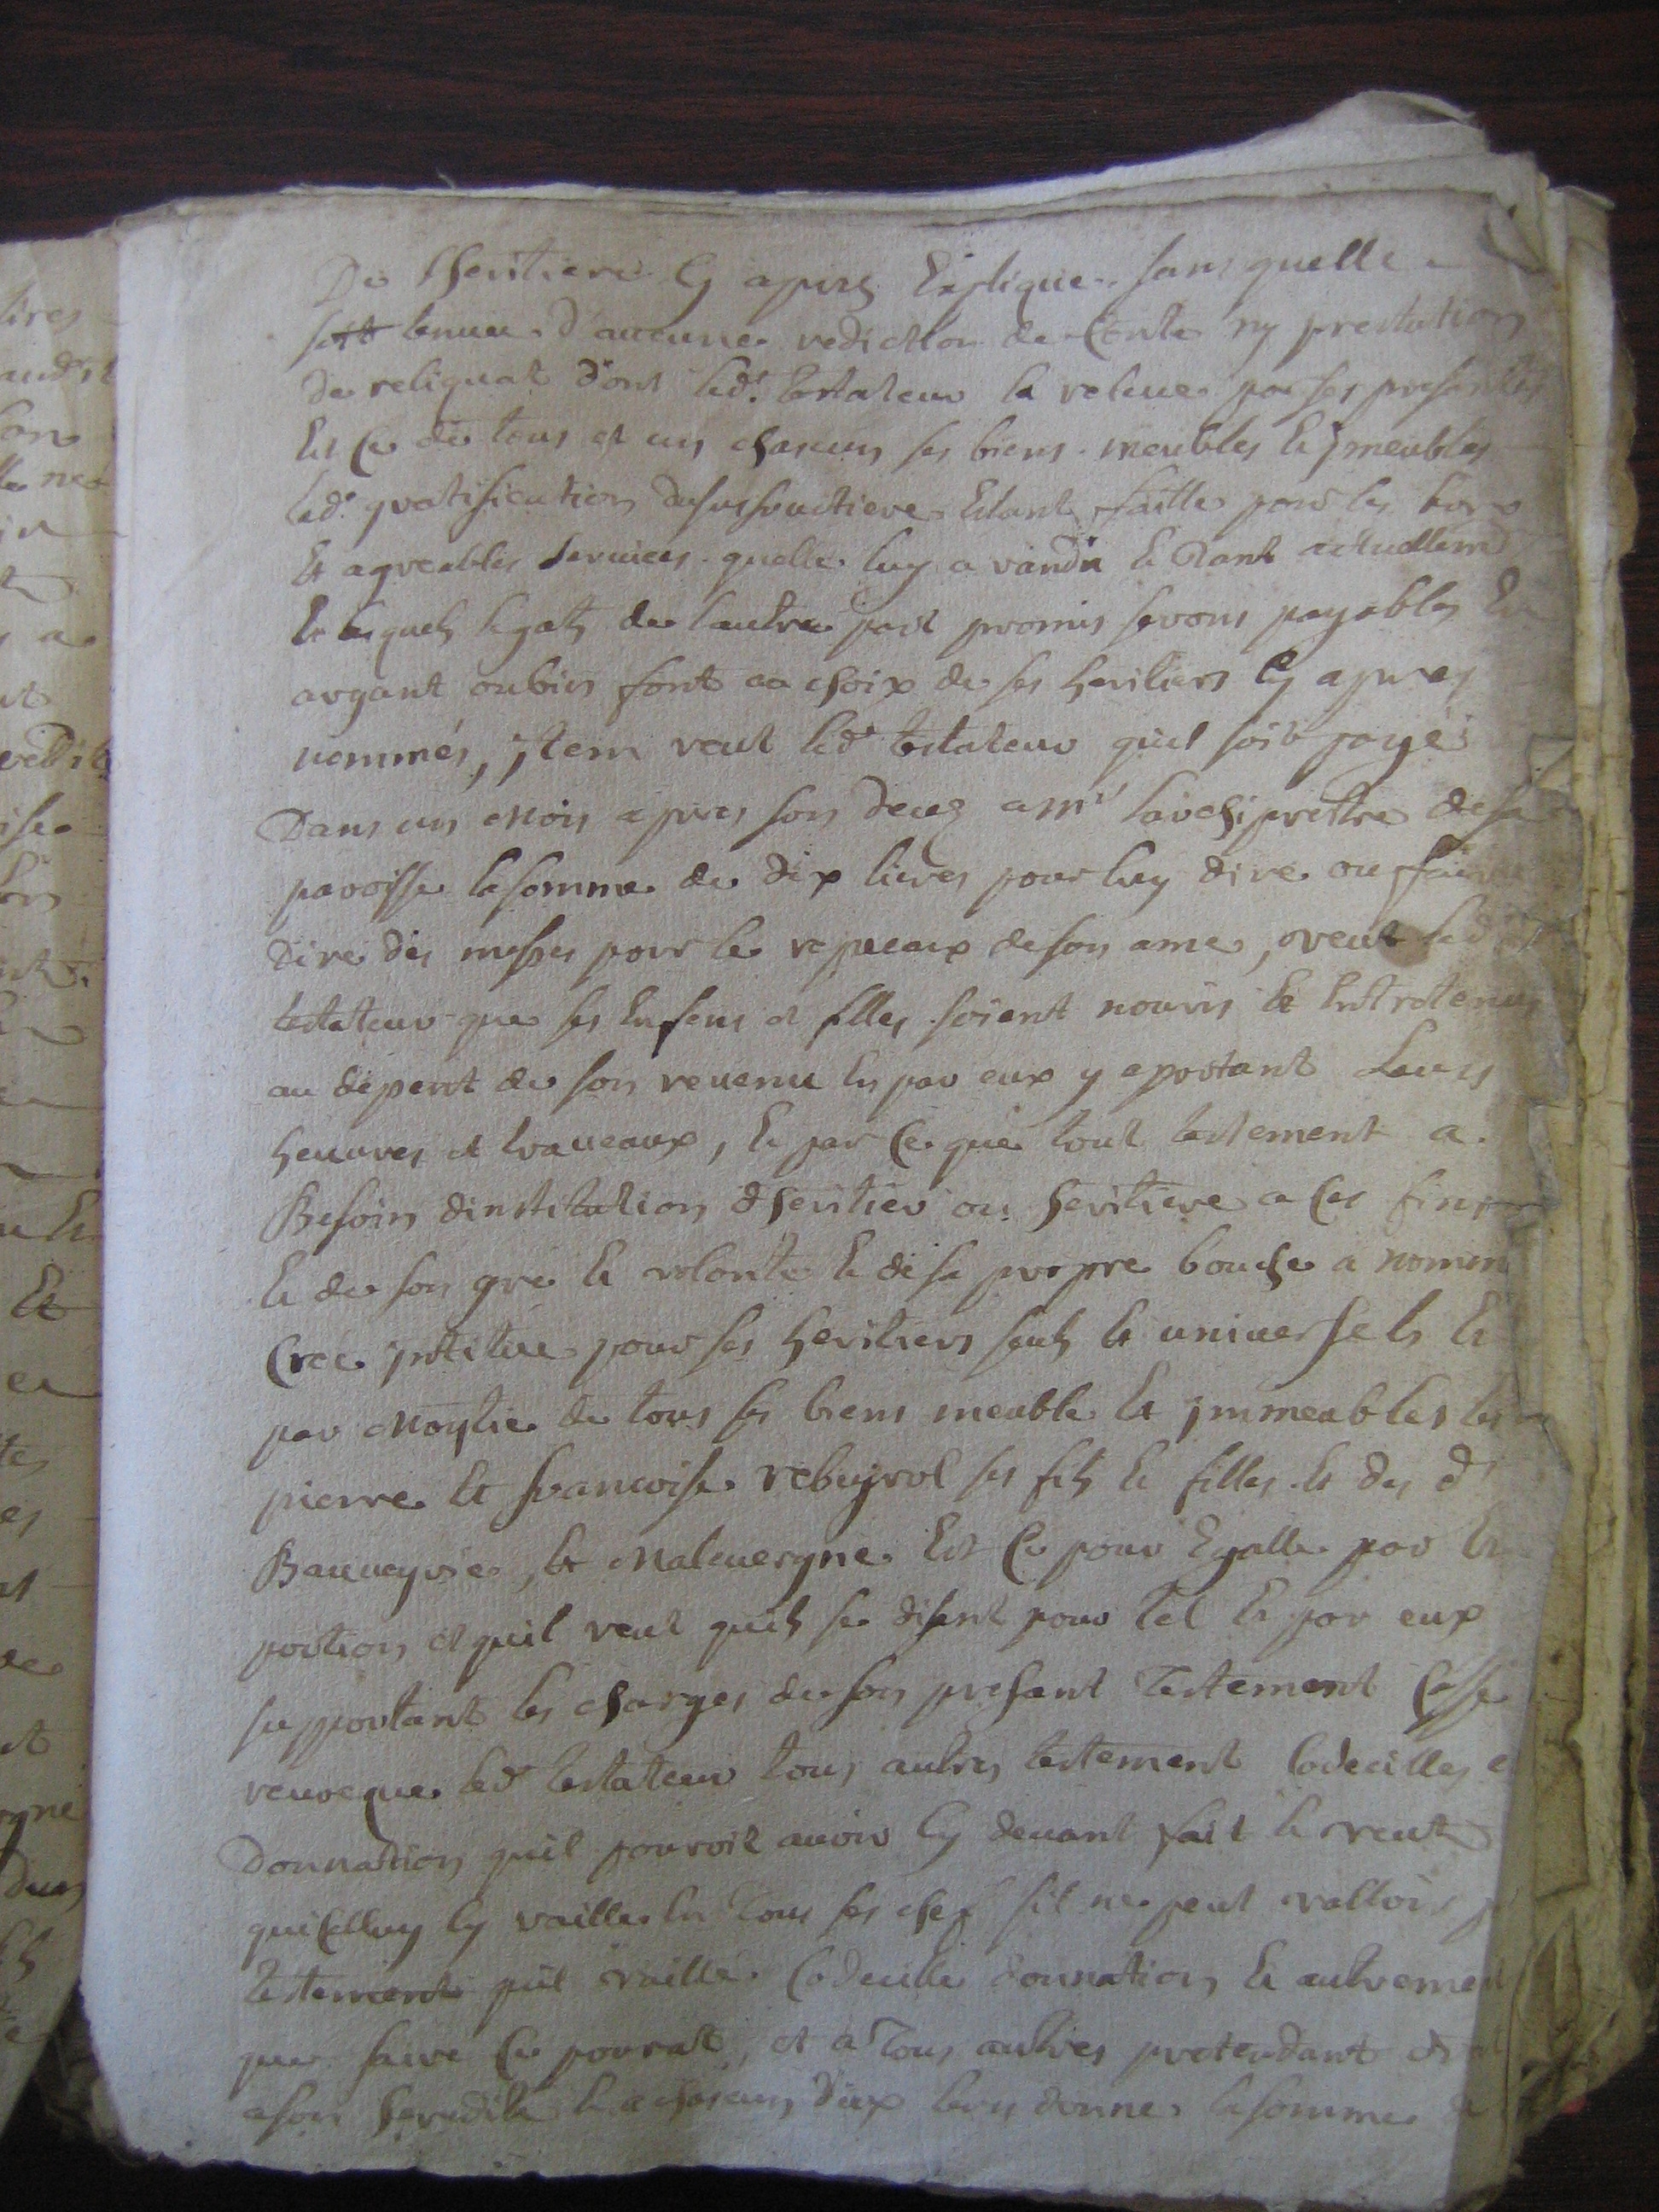 De lheritiere Cy apres Explique sans quelle
soit tenue d'aucune rediction de Conte ny prestation
de reliquat dont led.t testateur la releue par ses presentes
Et Ce de tous et un chascun ses biens meubles Et jmeubles
led.e gratification Estant faitte pour les bons
Et agreables seruices quelle luy a randu Et Rant actuellemt
Et lesquels legats de lautre part promis serons payables En
argant oubien font au choix de ses heritiers Cy apres
nommés, jtem veut led.t testateur quil soit payé
Dans un mois apres son decez a mr larchiprestre de sa
paroisse lasomme de dix liures pour luy dire ou faire
dire des messes pour le repeaux deson ame, veut led
testateur que ses Enfens et filles soient nouris Et Entretenus
au depent de son reuenu En par eux y aportant Leurs
heuures et traueaux, Et par Ce que tout testement a
Besoin dinstitution dheritier ou heritiere a Ces fins
Et de son gré Et volonté Et de sa propre bouche a nomm
Créé jntitue pour ses heritiers seuls Et uniuersels Et
par Moytie de tous ses biens meuble Et jmmeubles les
pierre Et francoise rebeyrol ses fils Et filles Et des d
Bauueyrie, Et Maleuergne Est Ce pour Egalle por
portion et quil veut quils se disent pour tel Et par eux
supportant les charges deson presant testement Casse
reuoque led.t testateur tous autres testement Codecilles e
Donnattion quil pourroit auoir Cy deuant fait Et veut
quiCelluy Cy vaille En tous ses chef sil ne peut valloir p
testement quil vaille Codecille donnation Et autrement
que faire Ce pourat, et a tous autres pretendant d
ason heredité Et a chascun d'eux leurs donne lasomme de